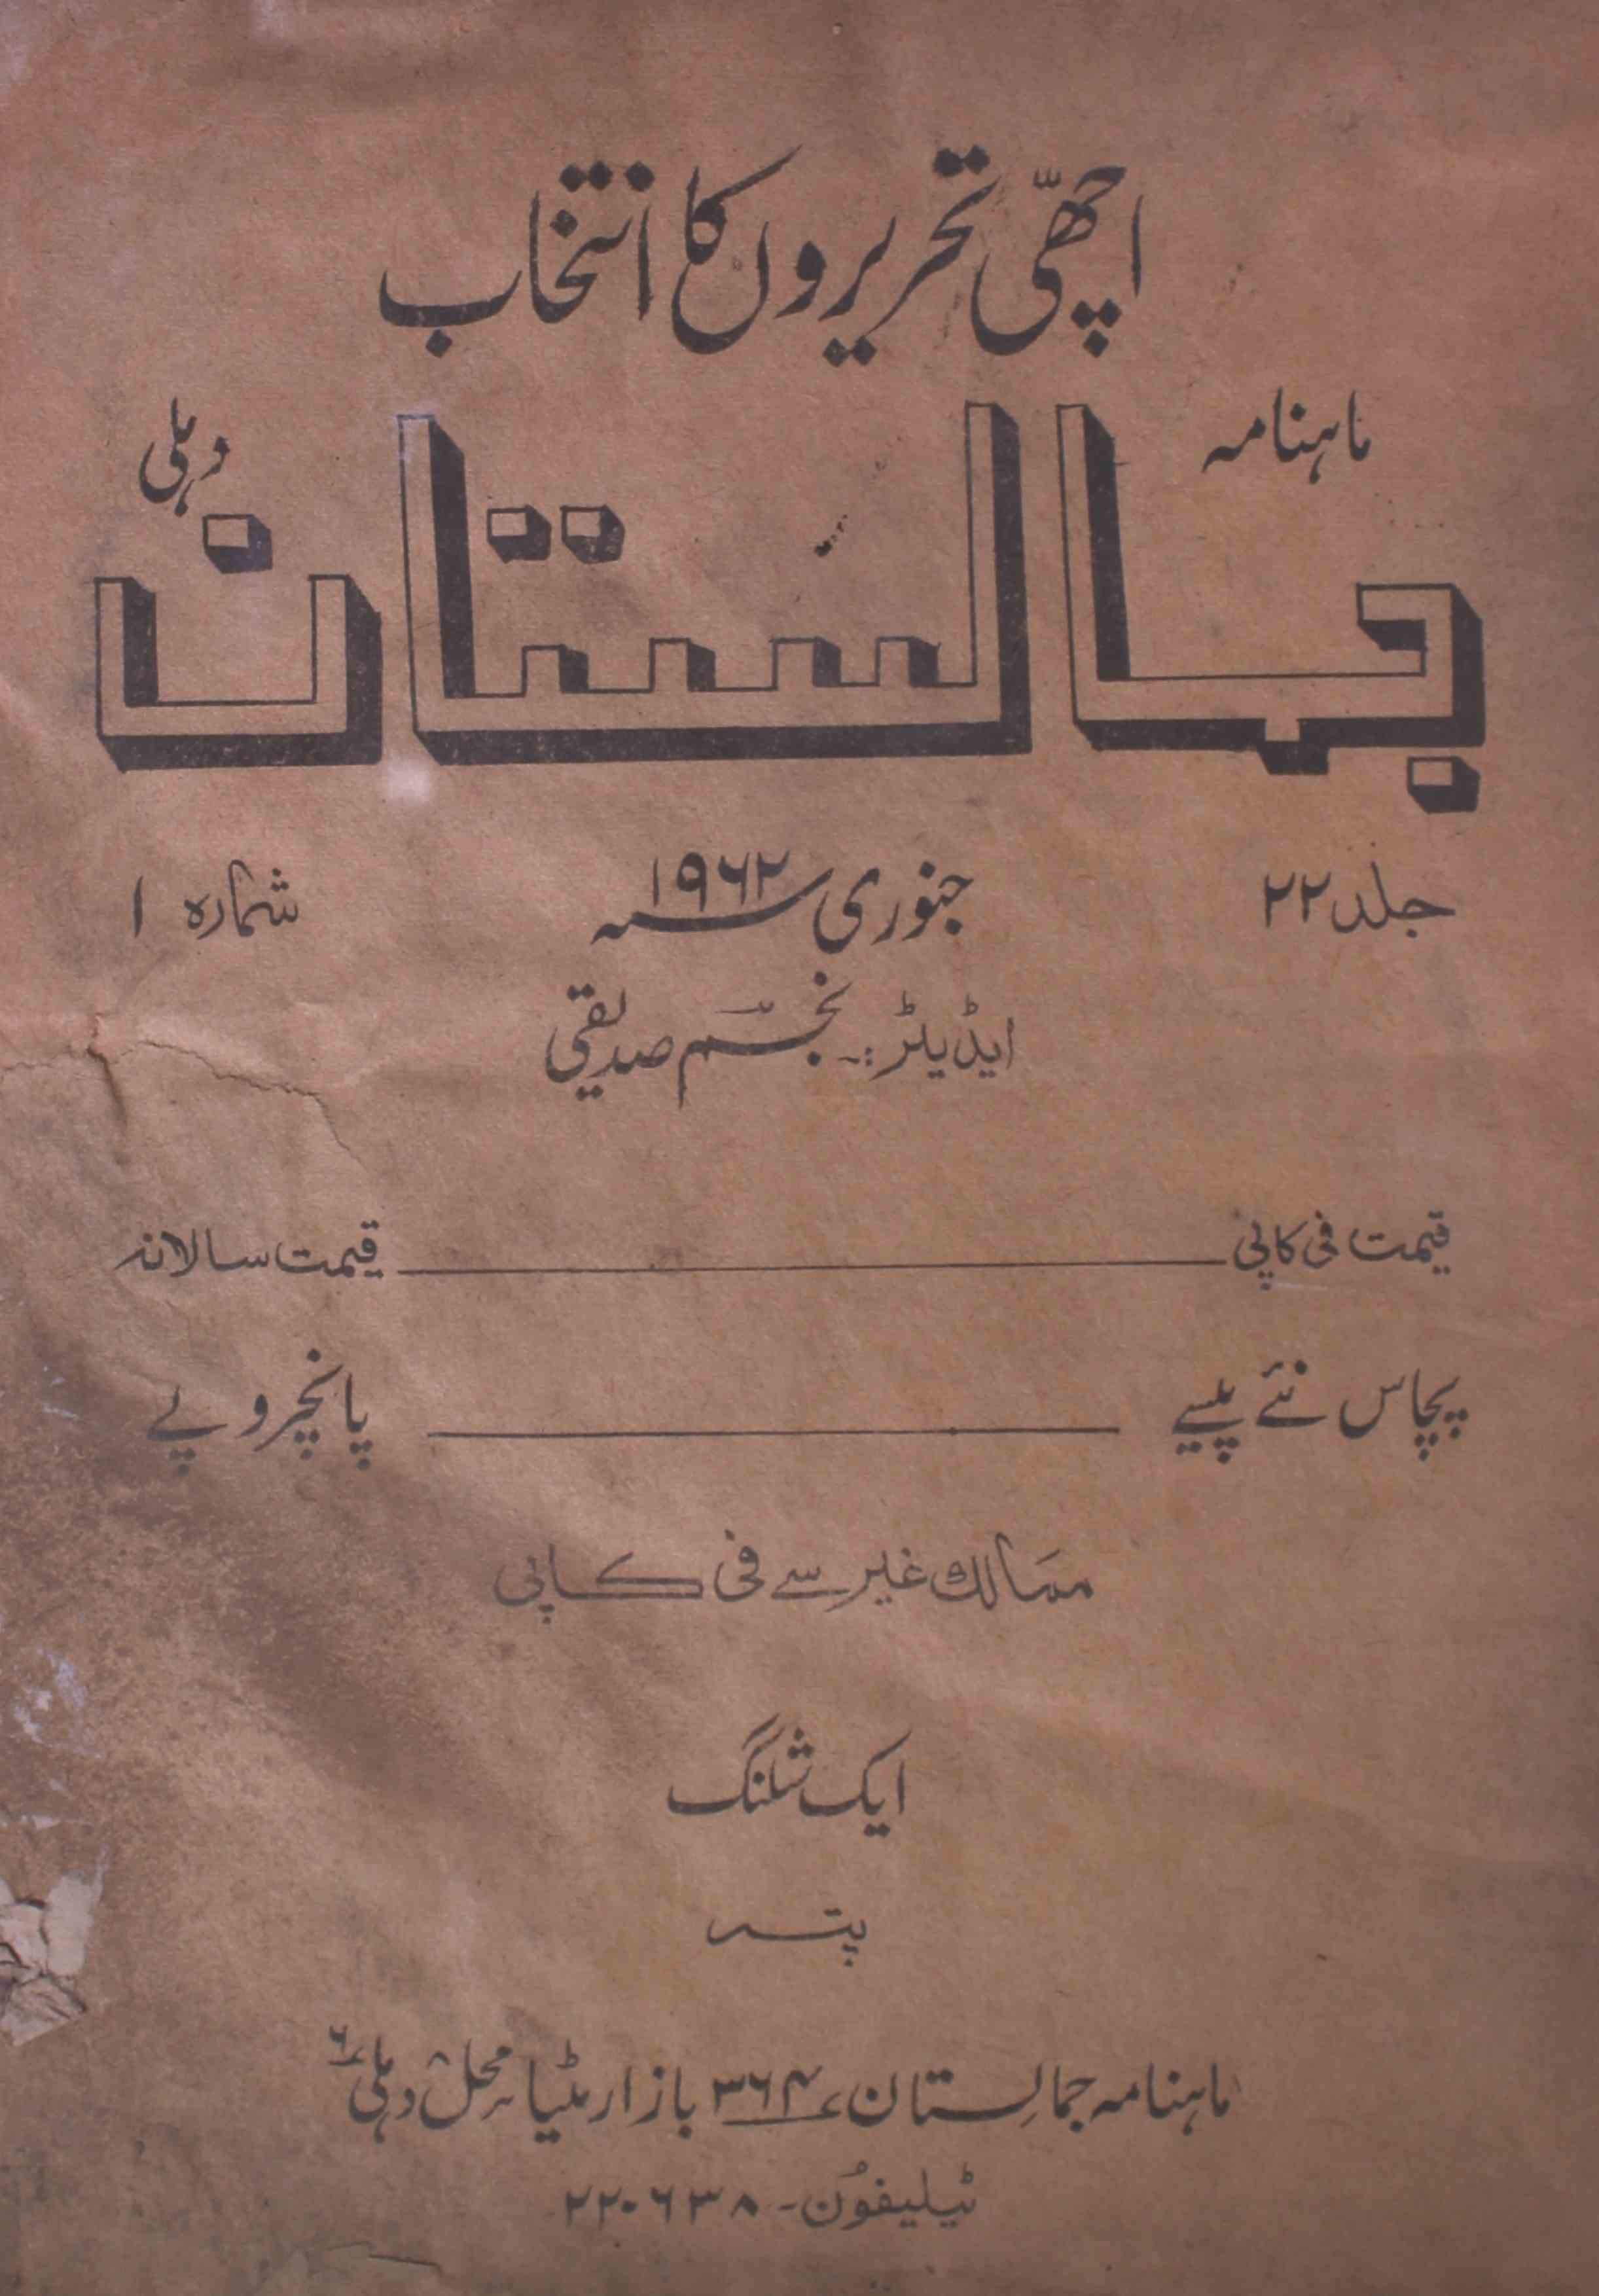 اچھّی تحریروں کا انتخاب
ماہنامہ جمالستان دہلی
جلد ۲۲ جنوری سنہ ۱۹۶۲ شمارہ ۱
ایڈیٹر:۔ نجم صدیقی
قیمت فی کاپی ——— قیمت سالانہ
پچاس نئے پیسے ——— پانچروپے
ممالک غیر سے فی کاپی
ایک شلنگ
پتہ
ماہنامہ جمالستان، ۳۶۴ بازار مٹیا محل دہلی ۶
ٹیلیفون - ۲۲۰۶۳۸